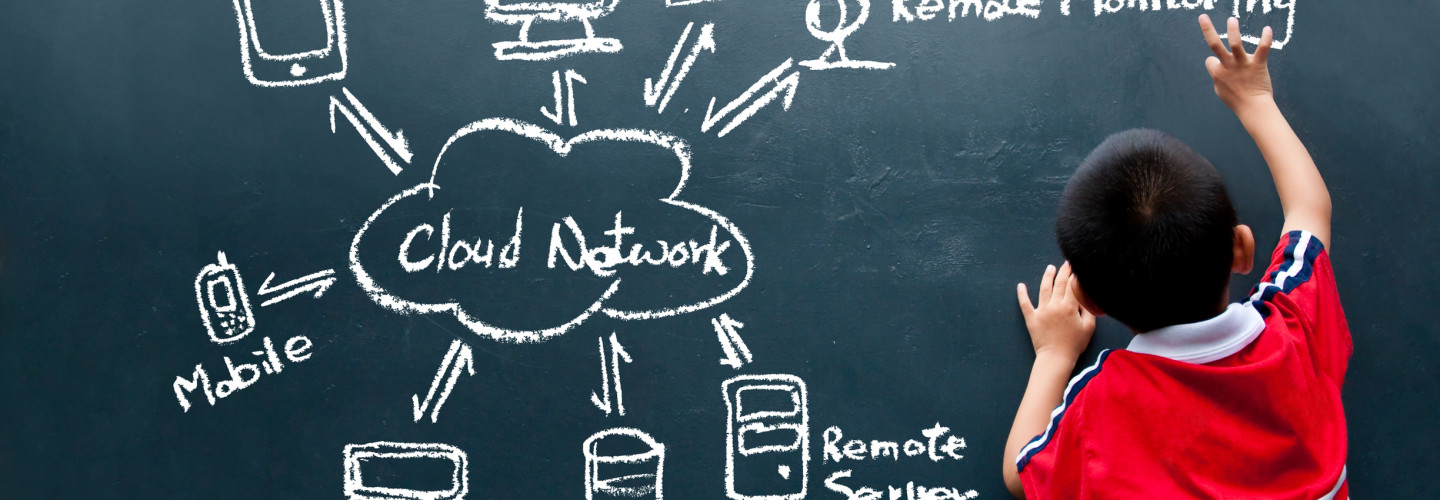 Remote Monitoring
Cloud Network
Mobile
Remote
Server